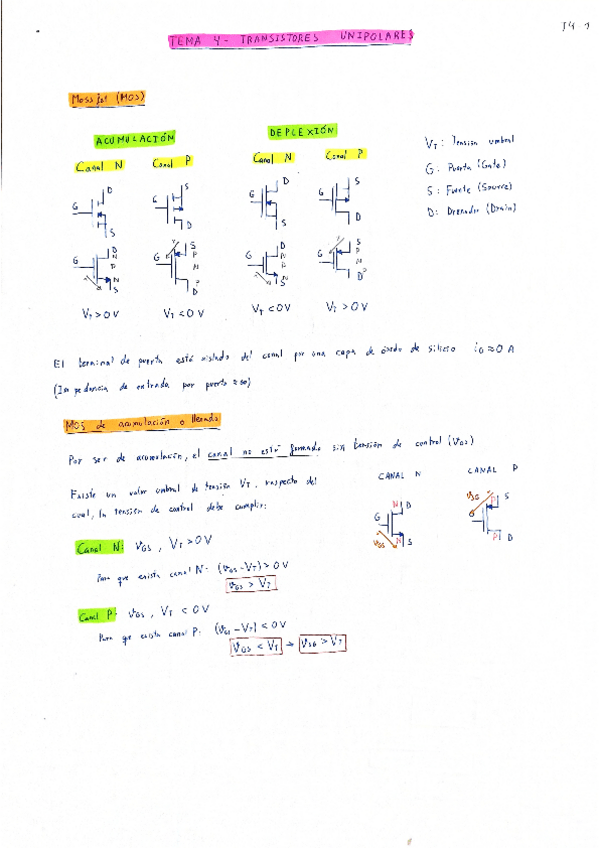 T4-1
TEMA 4 - TRANSISTORES UNIPOLARES
Mossfet (MOS)
ACUMULACIÓN
DEPLEXIÓN
Canal N
Canal P
Canal N
Canal P
VT: Tensión umbral
G: Puerta (Gate)
S: Fuente (Source)
D: Drenador (Drain)
G D S
G S D
G D S
G S D
G D N P N S
G S P N D
G D N P N S
G S P N P D
VT > 0 V
VT < 0 V
VT < 0 V
VT > 0 V
El terminal de puerta está aislado del canal por una capa de óxido de silicio iG ≈ 0 A
(Impedancia de entrada por puerta ≈ ∞)
MOS de acumulación o llenado
Por ser de acumulación, el canal no está formado sin tensión de control (VGS)
Existe un valor umbral de tensión VT, respecto del
cual, la tensión de control debe cumplir:
CANAL N
CANAL P
G N D VGS N S
VSG P S G P D
Canal N: VGS, VT > 0 V
Para que exista canal N: (VGS - VT) > 0 V
VGS > VT
Canal P: VGS, VT < 0 V
Para que exista canal P: (VGS - VT) < 0 V
VGS < VT → VSG > VT